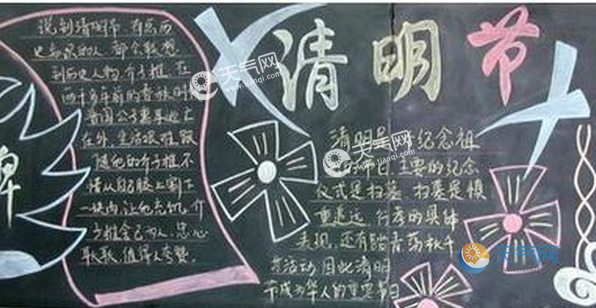 清明节
说到清明节,有点历
史知识的人,都会联想
到历史人物介子推。在
两千多年前的春秋时
晋国公子重耳逃亡
在外,生活艰难,跟
随他的介子推不
惜从自己腿上割下
一块肉让他充饥。介
子推舍己为人,忠心
耿耿,值得人赞
清明是 纪念祖
日,主要的纪念
仪式是扫墓,扫墓是慎
重追远、行孝的具体
表现,还有踏青荡秋千
活动,因此清明
节成为华人的重要节日
天气网
www.tianqi.com
天气网
www.tianqi.com
天气网
www.tianqi.com
天气网